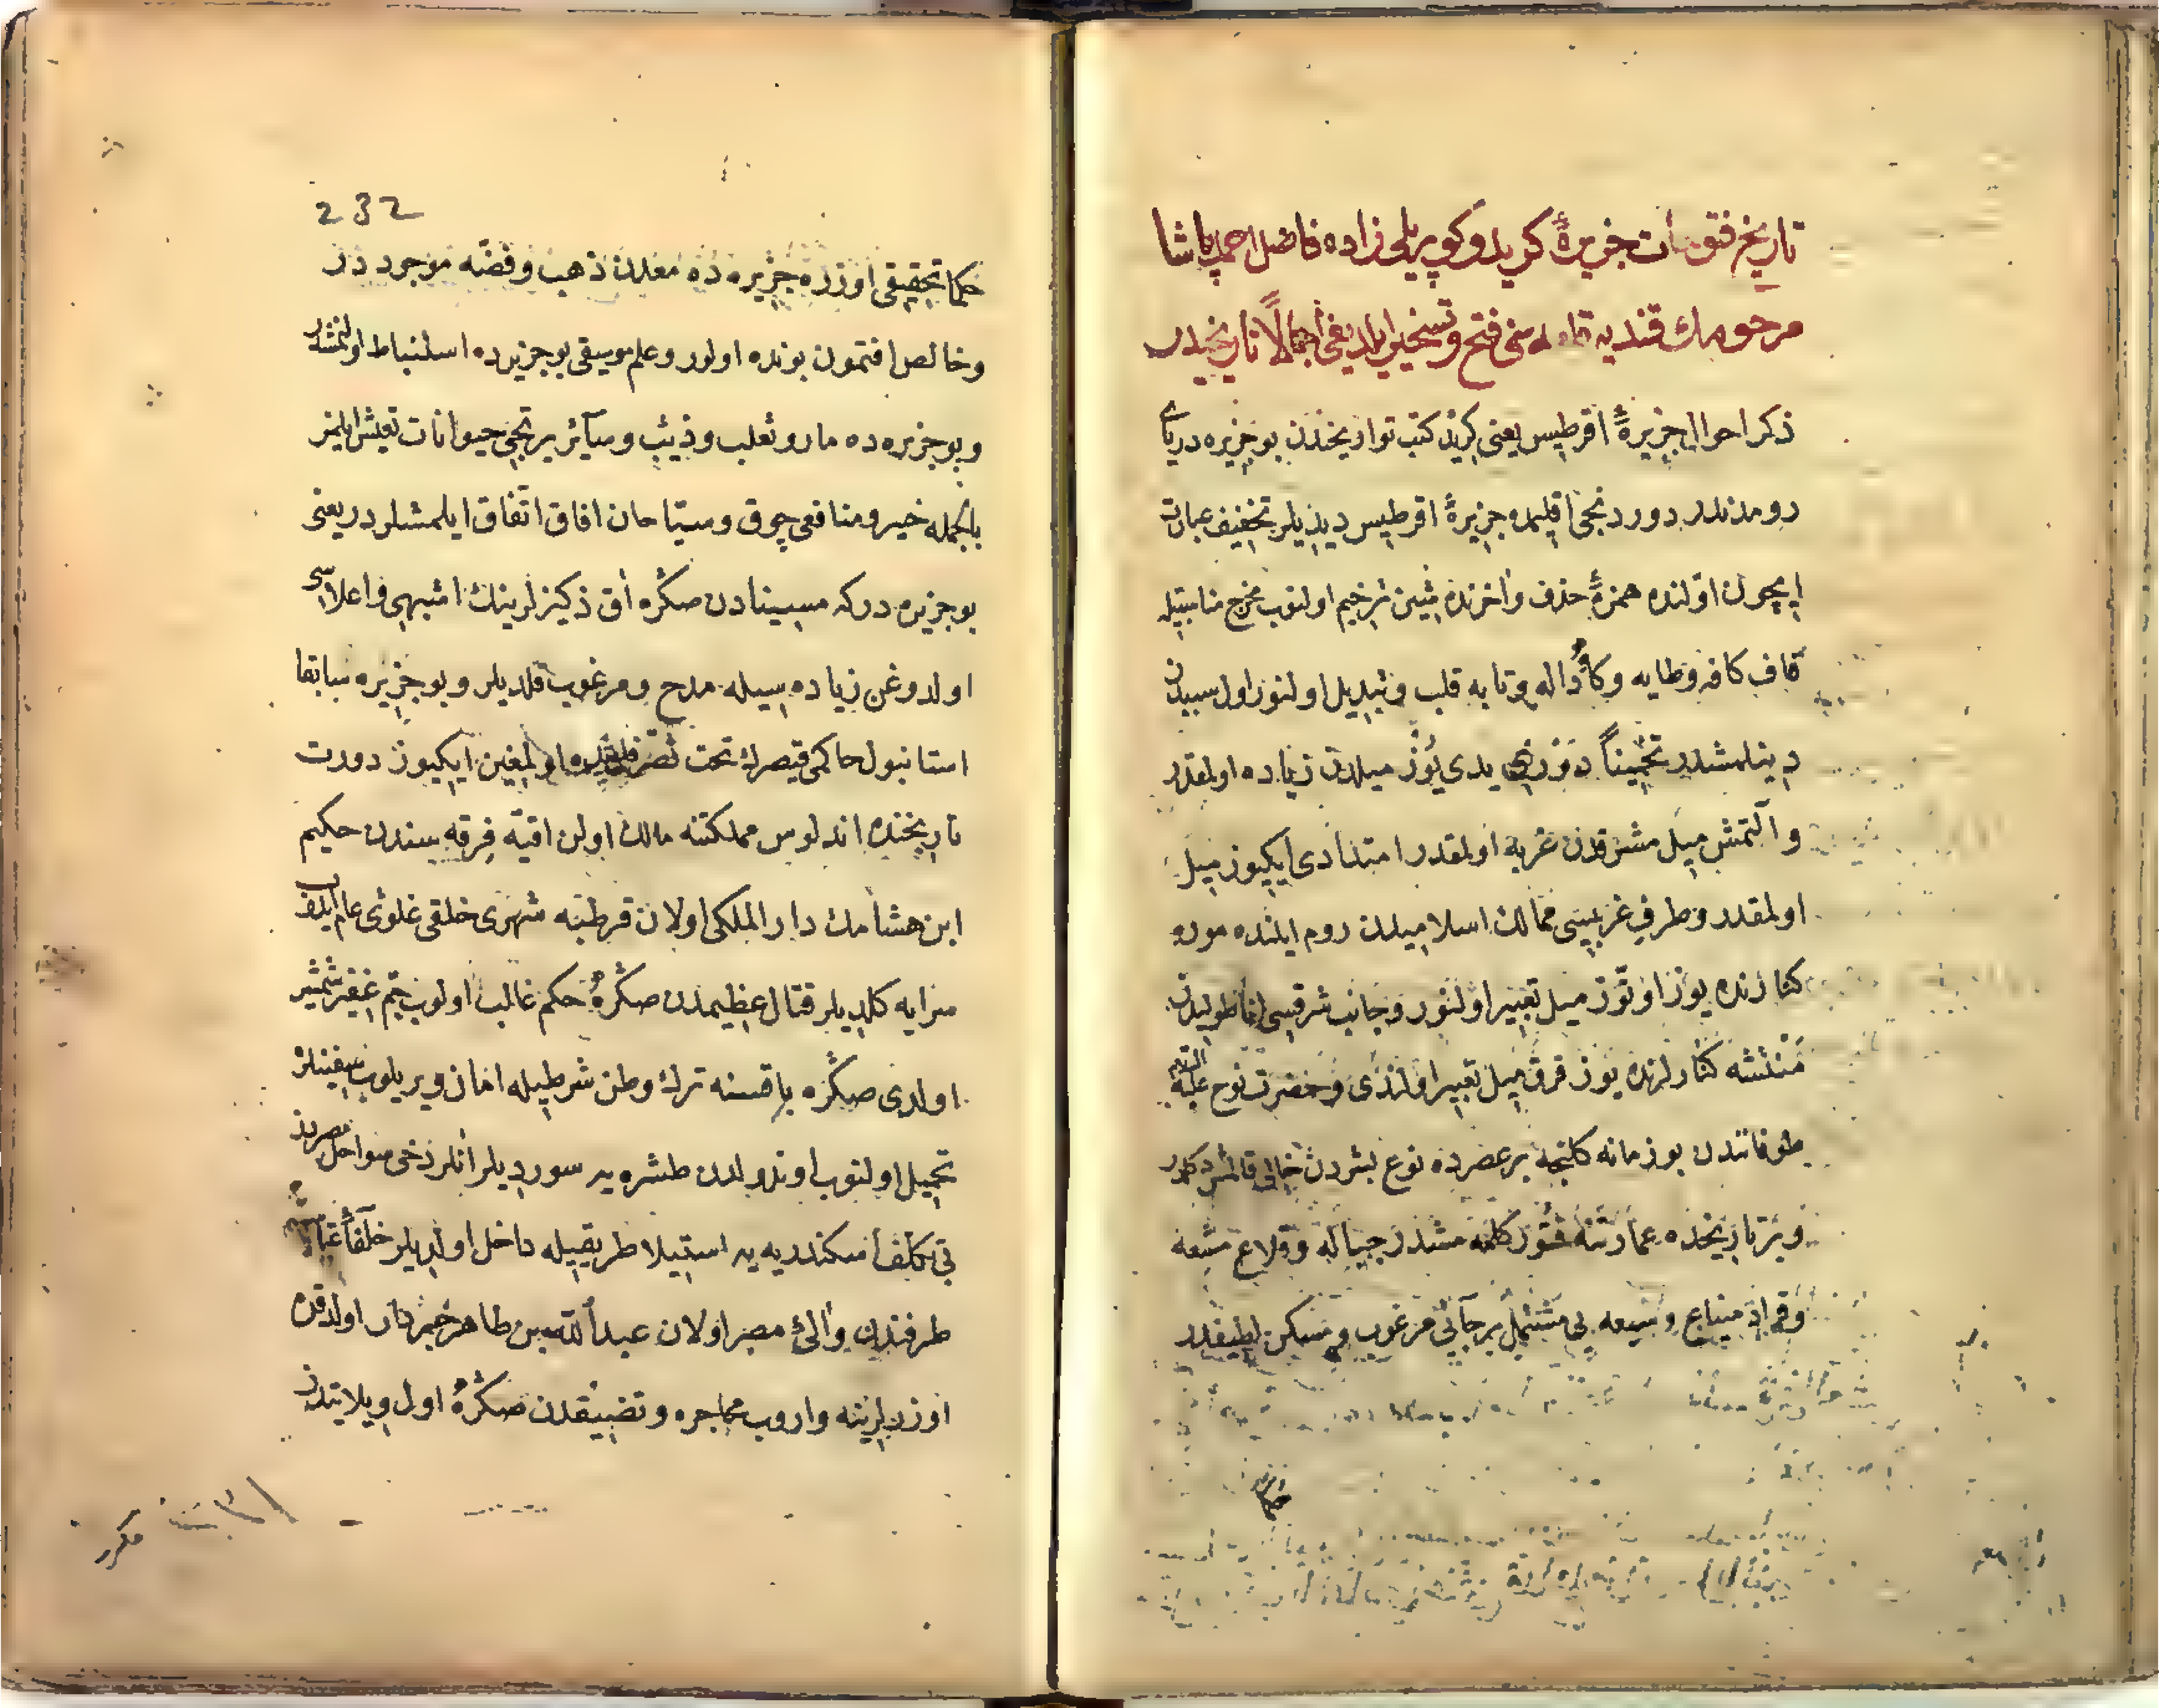 تاريخ فتوحات جزيرهٔ كريد و كوپريلى زاده فاضل احمد پاشا
مرحومك قنديه قلعه سنى فتح و تسخير ايلديغى اجمالاً تاريخيدر
ذكر احوال جزيرهٔ اقرطيس يعنى كريد كتب تواريخدن بو جزيره درياى
رومدندر دوردنجى اقليمده جزيرهٔ اقرطيس ديديلر تخفيف عبارت
ايچون اولنده همزهٔ حذف و اخرنده شين ترخيم اولنوب مخرج مناسبتيله
قاف كافه و طايه و كا داله و تايه قلب و تبديل اولنور اول سببدن
دينلمشدر تخميناً دورى يدى يوز ميلدن زياده اولمقدر
و آلتمش ميل مشرقدن غربه اولمقدر امتدادى ايكيوز ميل
اولمقدر و طرف غربيسى ممالك اسلاميدن روم ايلنده موره
كنارنده يوز اوتوز ميل تعبير اولنور و جانب شرقيسى اناطوليدن
منتشه كنارلرنده يوز قرق ميل تعبير اولندى و حضرت نوح عليه السلام
طوفانندن بو زمانه كلنجه بر عصرده نوع بشردن خالى قالمش دكلدر
و بر تاريخده عمارتنه فتور كلمه مشدر جباله و قلاع منيعه
و قراء و ضياع وسيعه يى مشتمل بر جاى مرغوب و مسكن لطيفدر
حكما
232
حكما تحقيقى اوزره جزيره ده معدن ذهب و فضه موجوددر
و خالص افتمون بونده اولور و علم موسيقى بو جزيره ده استنباط اولنمشدر
و بو جزيره ده مار و ثعلب و ذيب و سائر يرتجى حيوانات تعيش ايلمز
بالجمله خير و منافعى چوق و سياحان افاق اتفاق ايلمشلردر يعنى
بو جزيره در كه مسينادن صكره آق دكيز لرينك اشبهى و اعلاسى
اولدوغن زياده سيله مدح و مرغوب قلديلر و بو جزيره سابقا
استانبول حاكمى قيصرك تحت تصرفنده اولمغين ايكيوز دورت
تاريخنده اندلوس مملكتنه مالك اولن اميه فرقه سندن حكيم
ابن هشامك دار الملكى اولان قرطبه شهرى خلقى غلوئ عام ايدوب
سرايه كلديلر قتال عظيمدن صكره حكم غالب اولوب جم غفير شمشير
اولدى صكره باقسنه ترك وطن شرطيله امان ويريلوب سفينلره
تحميل اولنوب اوندولدن طشره يه سورديلر انلر دخى سواحل مصردن
بى تكلف اسكندريه يه استيلا طريقيله داخل اولديلر خلفاء عباسيه
طرفندن والئ مصر اولان عبد الله بن طاهر خبردار اولدقده
اوزرلرينه واروب محاصره و تضييقدن صكره اول ولايتدن
مكرر